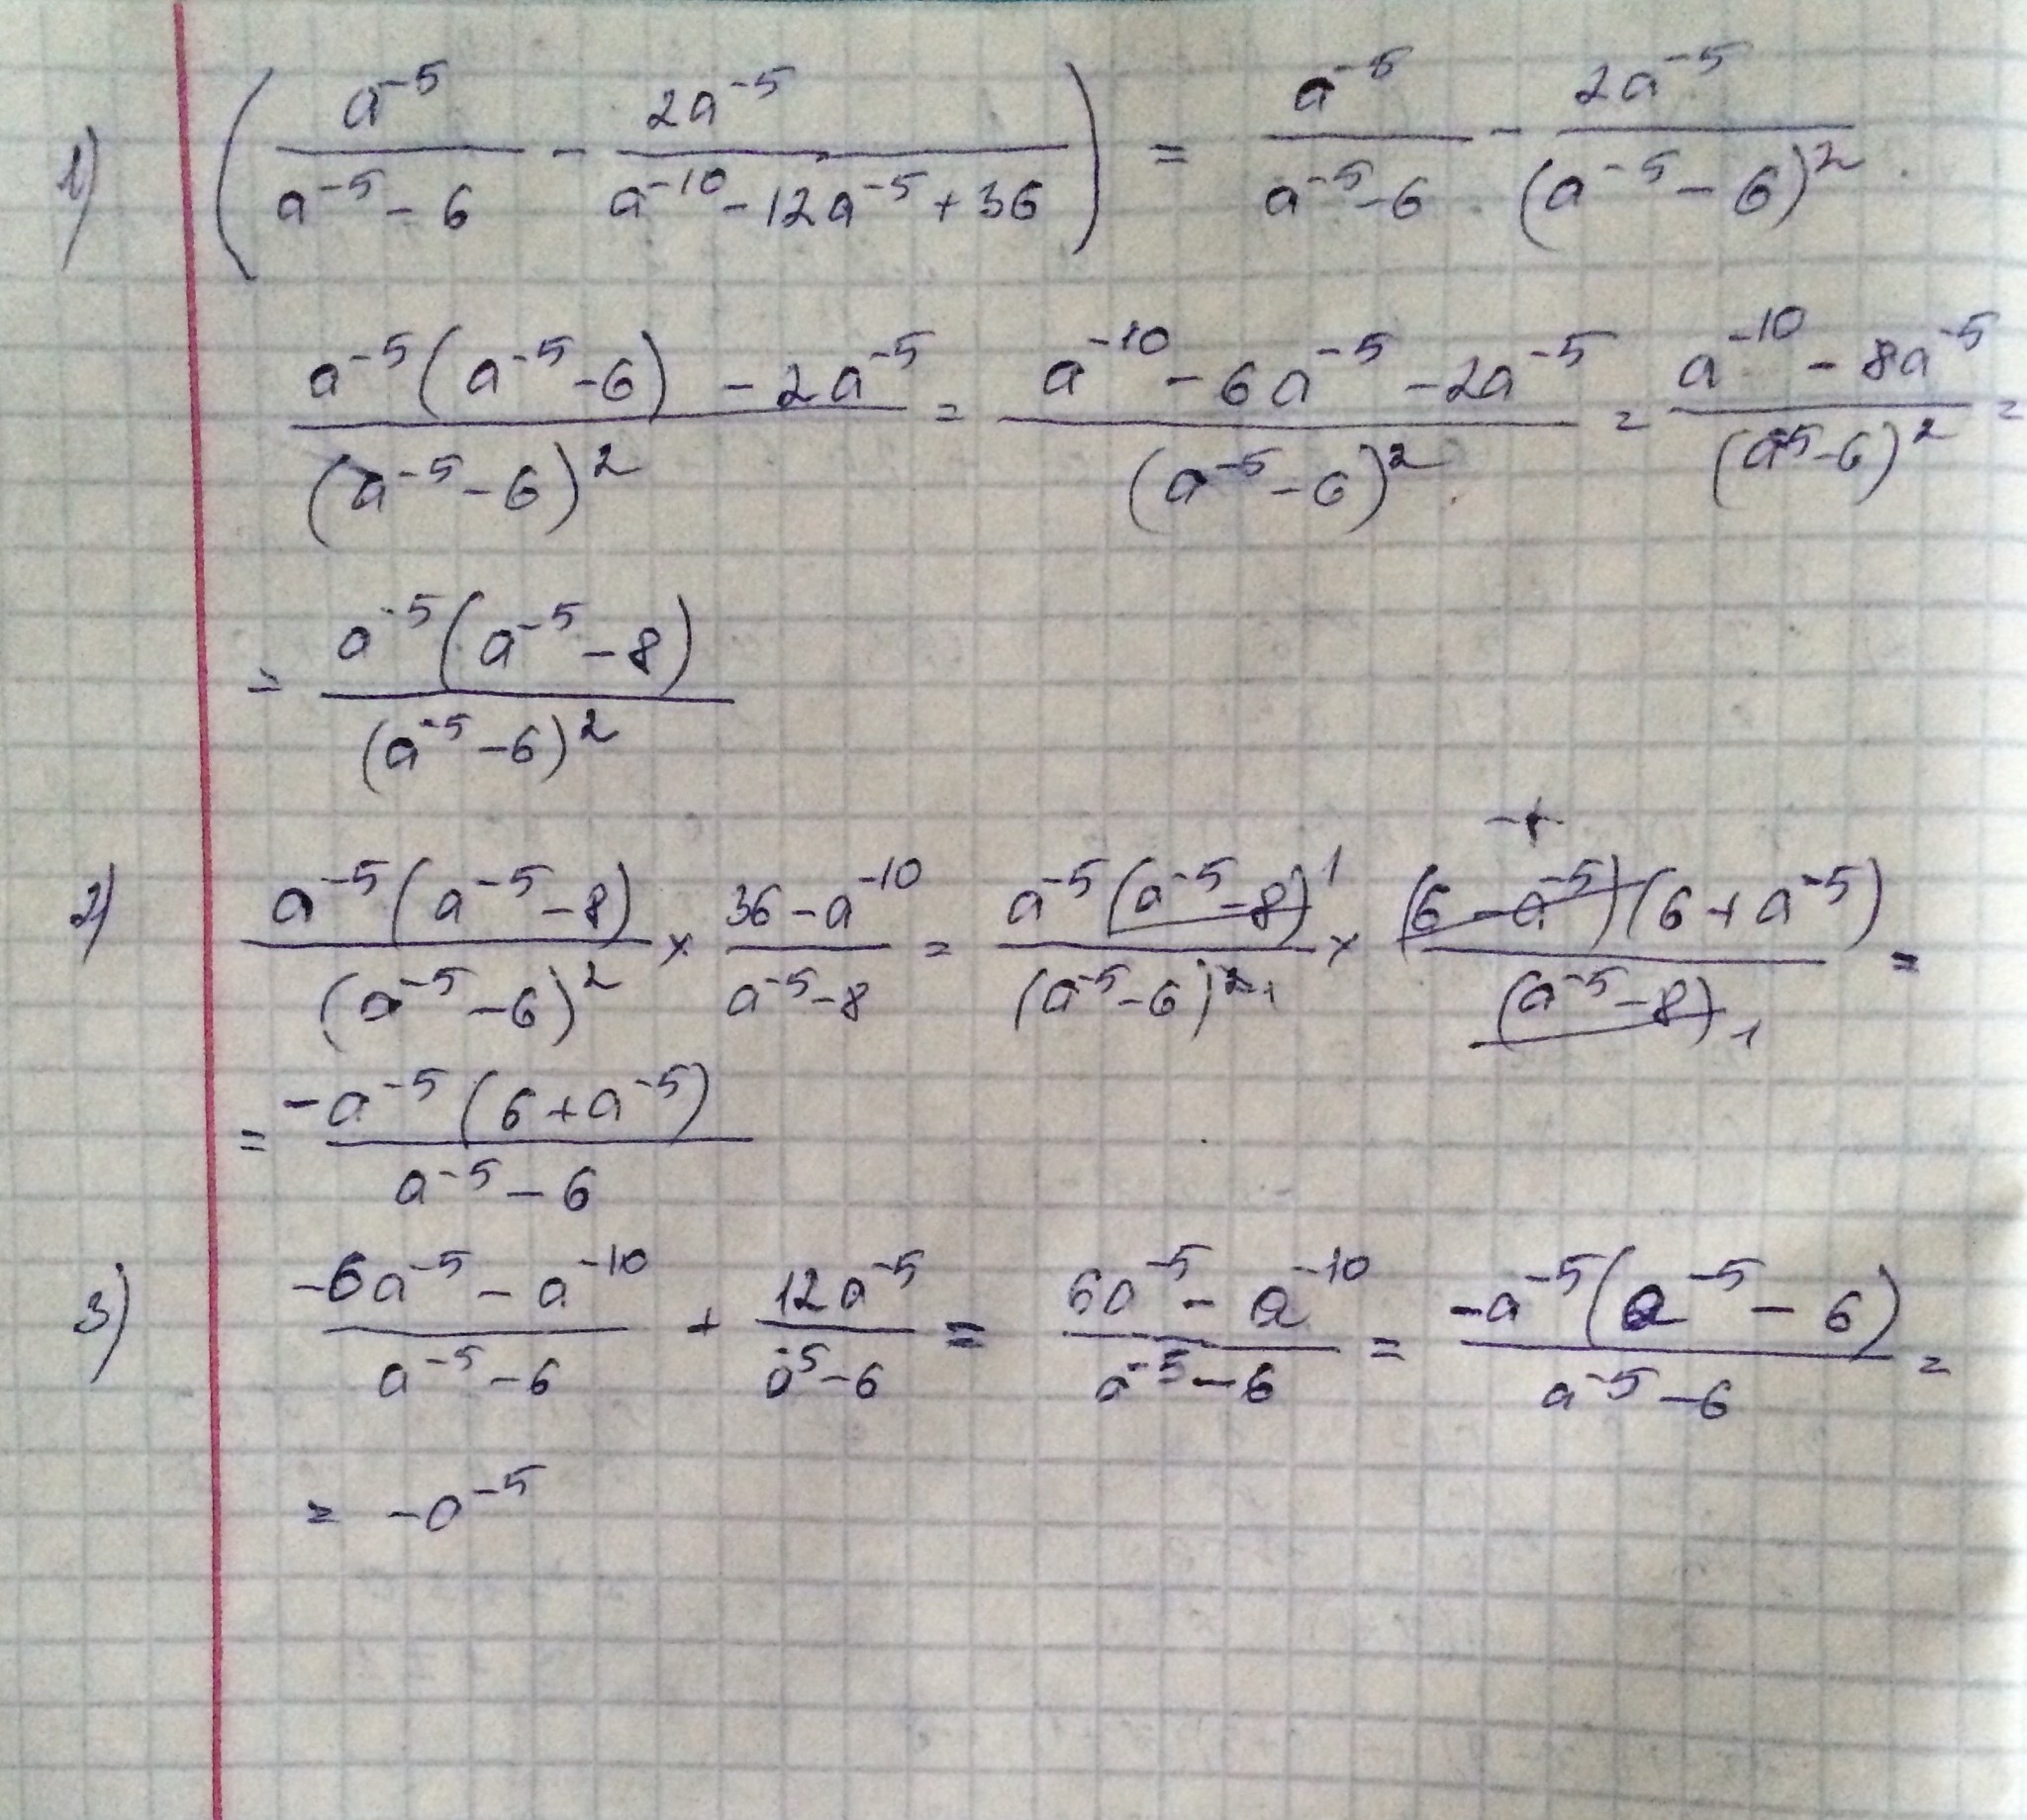 1) (a⁻⁵/(a⁻⁵ - 6) - 2a⁻⁵/(a⁻¹⁰ - 12a⁻⁵ + 36)) = a⁻⁵/(a⁻⁵ - 6) - 2a⁻⁵/(a⁻⁵ - 6)²
(a⁻⁵(a⁻⁵ - 6) - 2a⁻⁵)/(a⁻⁵ - 6)² = (a⁻¹⁰ - 6a⁻⁵ - 2a⁻⁵)/(a⁻⁵ - 6)² = (a⁻¹⁰ - 8a⁻⁵)/(a⁻⁵ - 6)² =
= a⁻⁵(a⁻⁵ - 8)/(a⁻⁵ - 6)²
2) a⁻⁵(a⁻⁵ - 8)/(a⁻⁵ - 6)² × (36 - a⁻¹⁰)/(a⁻⁵ - 8) = a⁻⁵(a⁻⁵ - 8) 1/(a⁻⁵ - 6)² 1 × -1 (6 - a⁻⁵)(6 + a⁻⁵)/(a⁻⁵ - 8) 1 =
= -a⁻⁵(6 + a⁻⁵)/(a⁻⁵ - 6)
3) (-6a⁻⁵ - a⁻¹⁰)/(a⁻⁵ - 6) + 12a⁻⁵/(a⁻⁵ - 6) = (6a⁻⁵ - a⁻¹⁰)/(a⁻⁵ - 6) = -a⁻⁵(a⁻⁵ - 6)/(a⁻⁵ - 6) =
= -a⁻⁵